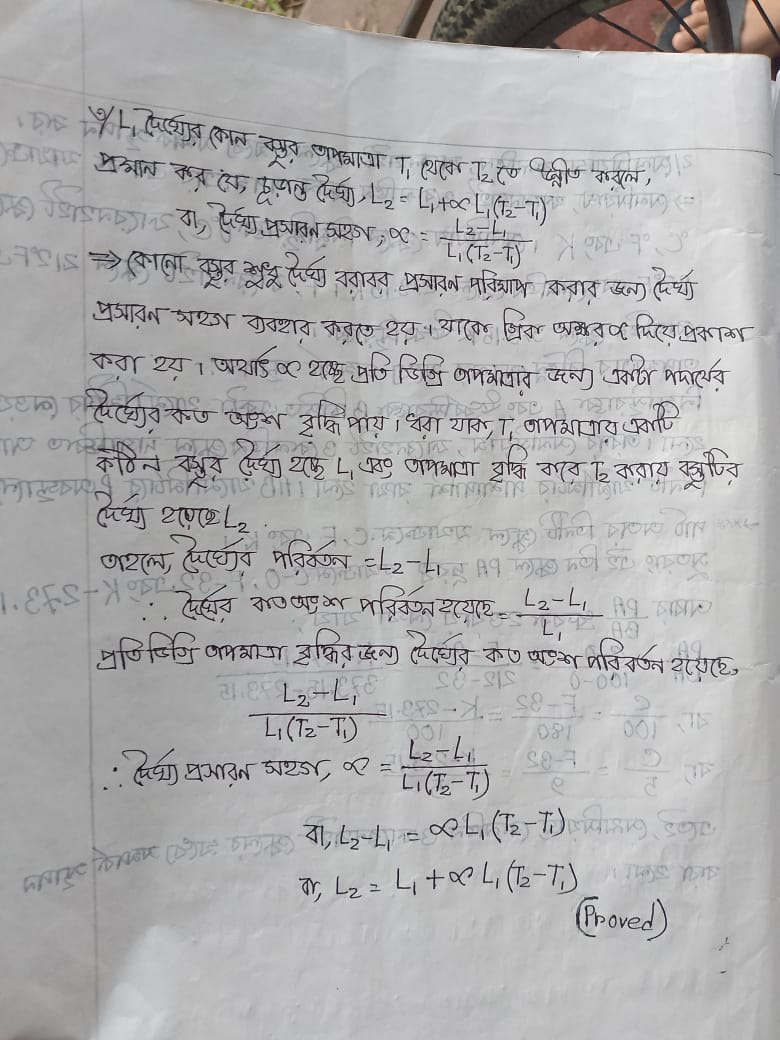 ৩/ L₁ দৈর্ঘ্যের কোন বস্তুর তাপমাত্রা T₁ থেকে T₂ তে উন্নীত করলে,
প্রমান কর যে, চূড়ান্ত দৈর্ঘ্য, L₂ = L₁+∝ L₁(T₂-T₁)
বা, দৈর্ঘ্য প্রসারন সহগ, ∝ = (L₂-L₁)/(L₁(T₂-T₁))
⇒ কোনো বস্তুর শুধু দৈর্ঘ্য বরাবর প্রসারন পরিমাপ করার জন্য দৈর্ঘ্য
প্রসারন সহগ ব্যবহার করতে হয়। যাকে গ্রিক অক্ষর ∝ দিয়ে প্রকাশ
করা হয়। অর্থাৎ ∝ হচ্ছে প্রতি ডিগ্রি তাপমাত্রার জন্য একটা পদার্থের
দৈর্ঘ্যের কত অংশ বৃদ্ধি পায়। ধরা যাক, T₁ তাপমাত্রায় একটি
কঠিন বস্তুর দৈর্ঘ্য হচ্ছে L₁ এবং তাপমাত্রা বৃদ্ধি করে T₂ করায় বস্তুটির
দৈর্ঘ্য হয়েছে L₂.
তাহলে, দৈর্ঘ্যের পরিবর্তন = L₂-L₁
∴ দৈর্ঘ্যের কত অংশ পরিবর্তন হয়েছে = (L₂-L₁)/L₁
প্রতি ডিগ্রি তাপমাত্রা বৃদ্ধির জন্য দৈর্ঘ্যের কত অংশ পরিবর্তন হয়েছে,
(L₂-L₁)/(L₁(T₂-T₁))
∴ দৈর্ঘ্য প্রসারন সহগ, ∝ = (L₂-L₁)/(L₁(T₂-T₁))
বা, L₂-L₁ = ∝ L₁(T₂-T₁)
বা, L₂ = L₁ + ∝ L₁(T₂-T₁)
(Proved)